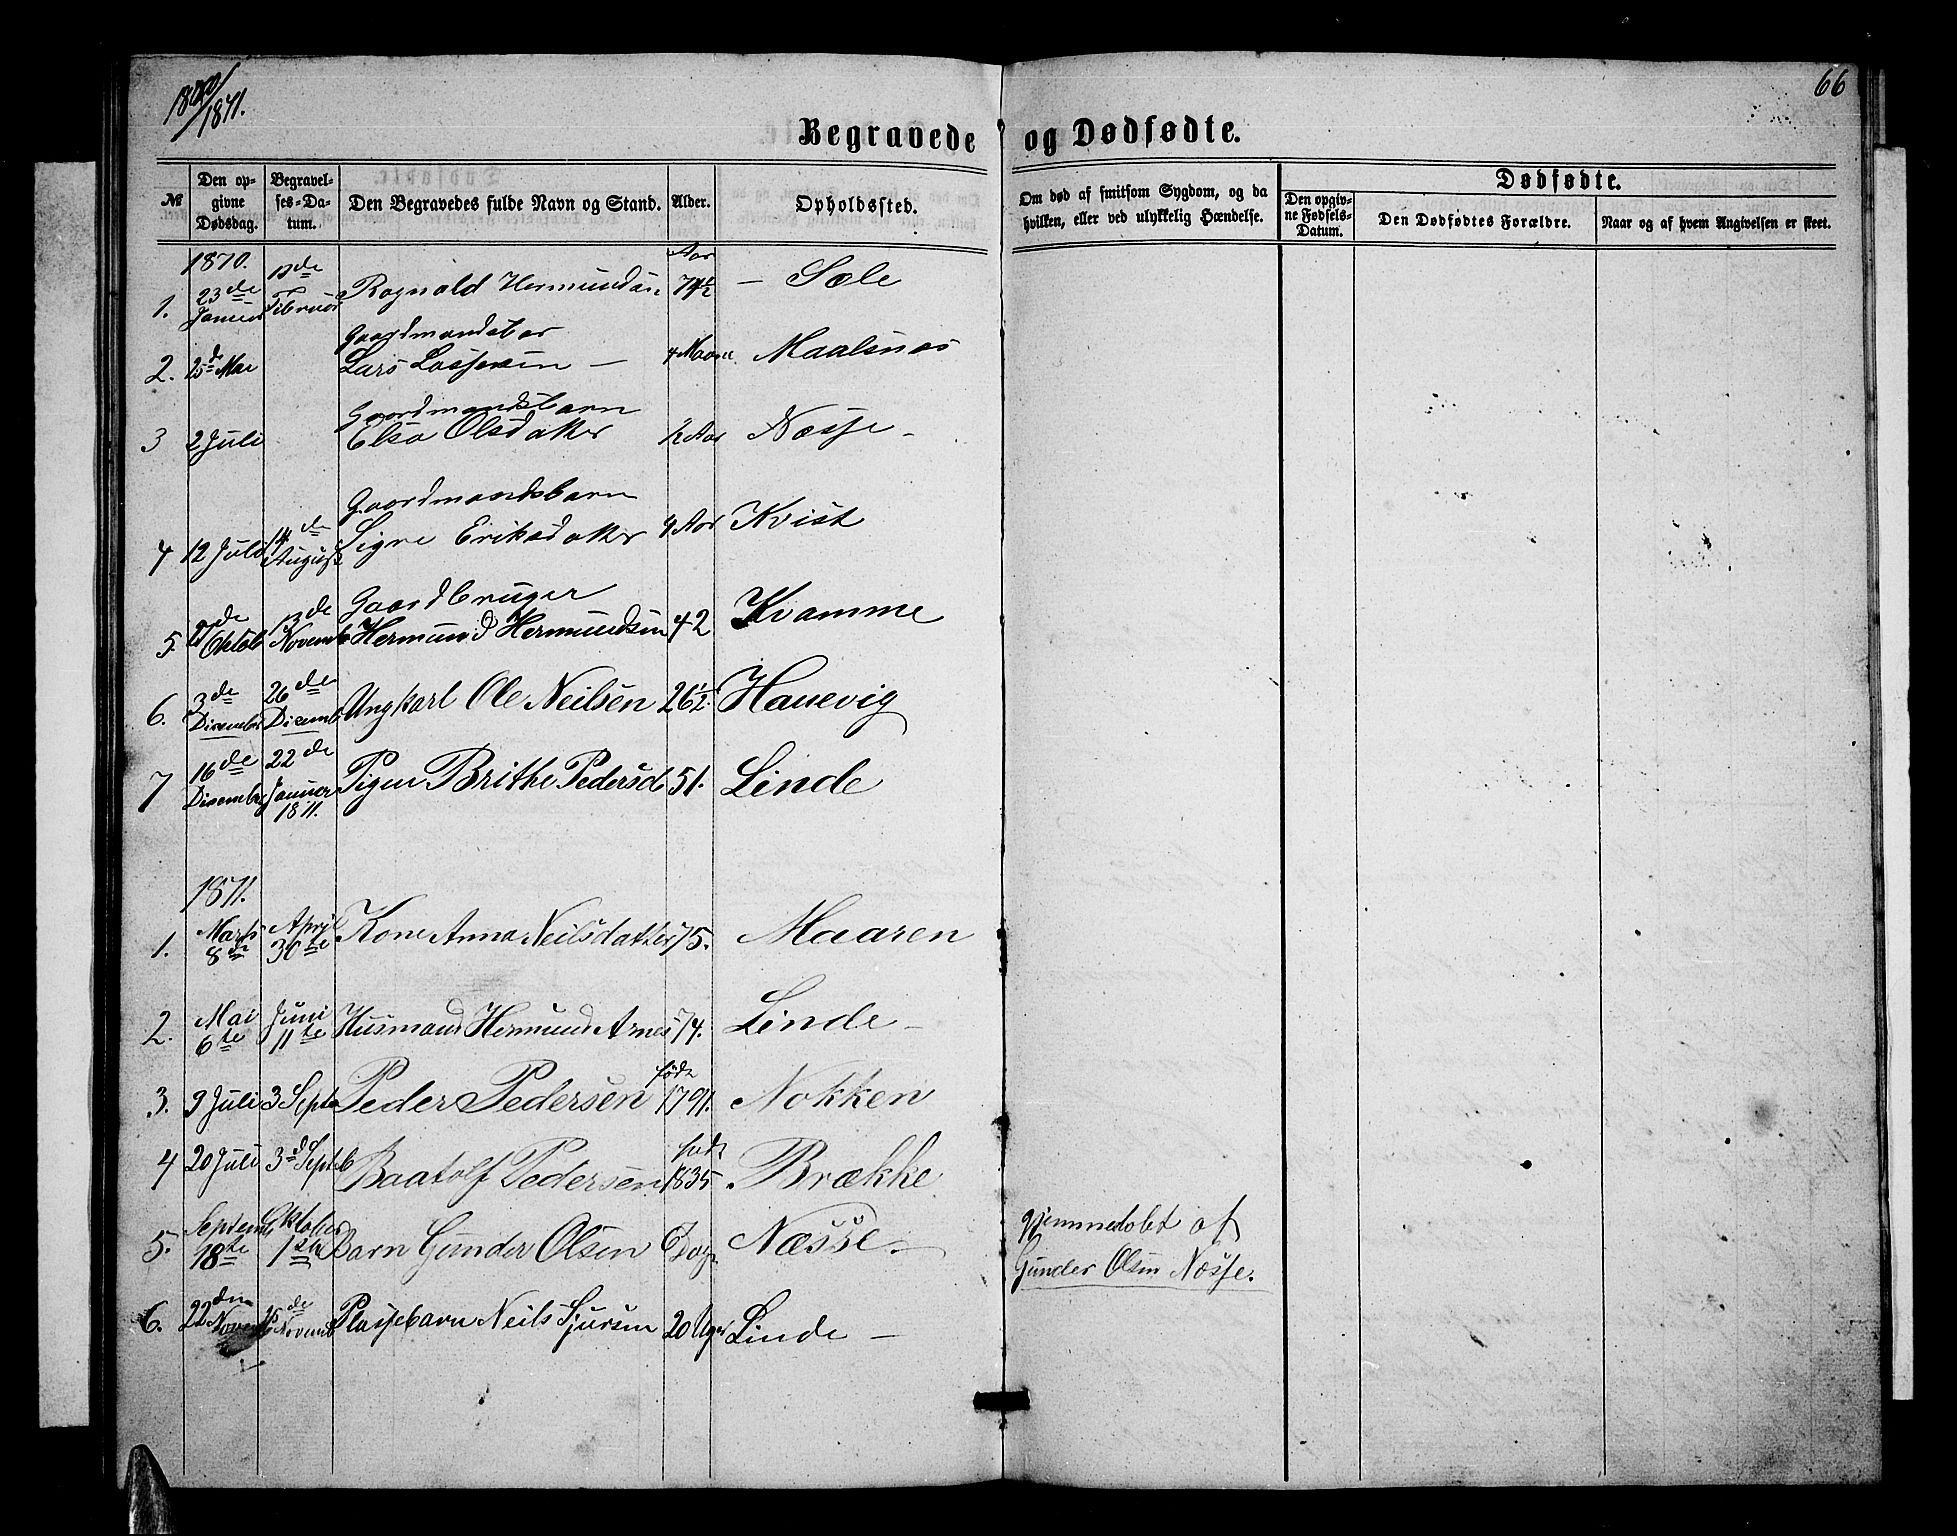 1870/
1871.
66
Begravede og Dødfødte.
№
Den opgivne Dødsdag.
Begravelses-Datum.
Den Begravedes fulde Navn og Stand.
Alder.
Opholdssted.
Om død af smitsom Sygdom, og da hvilken, eller ved ulykkelig Hændelse.
Dødfødte.
Den opgivne Fødsels-Datum.
Den Dødfødtes Forældre.
Naar og af hvem Angivelsen er skeet.
1870.
1. 23de Januar Februar Rognald Hermundsen Aar 74½ – Sæle
Gaardmandsbar
2. 25d Mai Lars Lassesen – 4 Maan Maalsnæs
Gaardmandsbarn
3 2 Juli Elsa Olsdatter ½ Aar Næsse –
Gaardmandsbarn
4 12 Juli 14de August Signe Eriksdatter 4 Aar Kvist
Gaardbruger
5. de Oktob 13de Novemb Hermund Hermundsen 42 Kvamme
6. 3de Disember 26de Disemb Ungkarl Ole Neilsen 26½ Hauevig
7 16de Disember 22de Januar 1871. Pigen Brithe Pedersd 51. Linde
1871.
1. Marts 8de April 30te Kone Anna Neilsdatter 75. Maaren
2. Mai 6te Juni 11te Husmand Hermund Arnes 74. Linde –
3. 9 Juli 3 Septe Peder Pedersen født 1791. Nokken
4 20 Juli 3d Septb Baatolf Pedersen født 1835 Brække
5. Septem 18te Oktober 1ste Barn Gunder Olsen 6 Dage Næsse –
Hjemmedøbt af
Gunder Olsen Næsse.
6. 22den Novemb 25de Novemb Pleiebarn Neils Sjursen 20 Uger Linde –